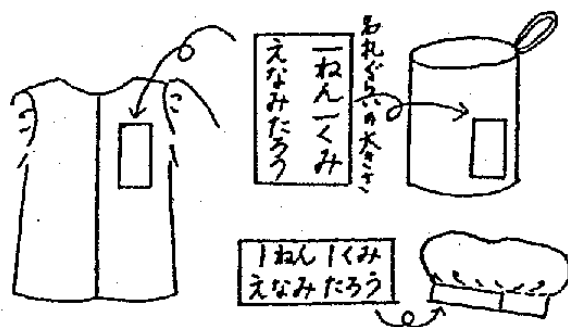 名札ぐらいの大きさ
一ねん一くみ
えなみたろう
1ねん1くみ
えなみたろう